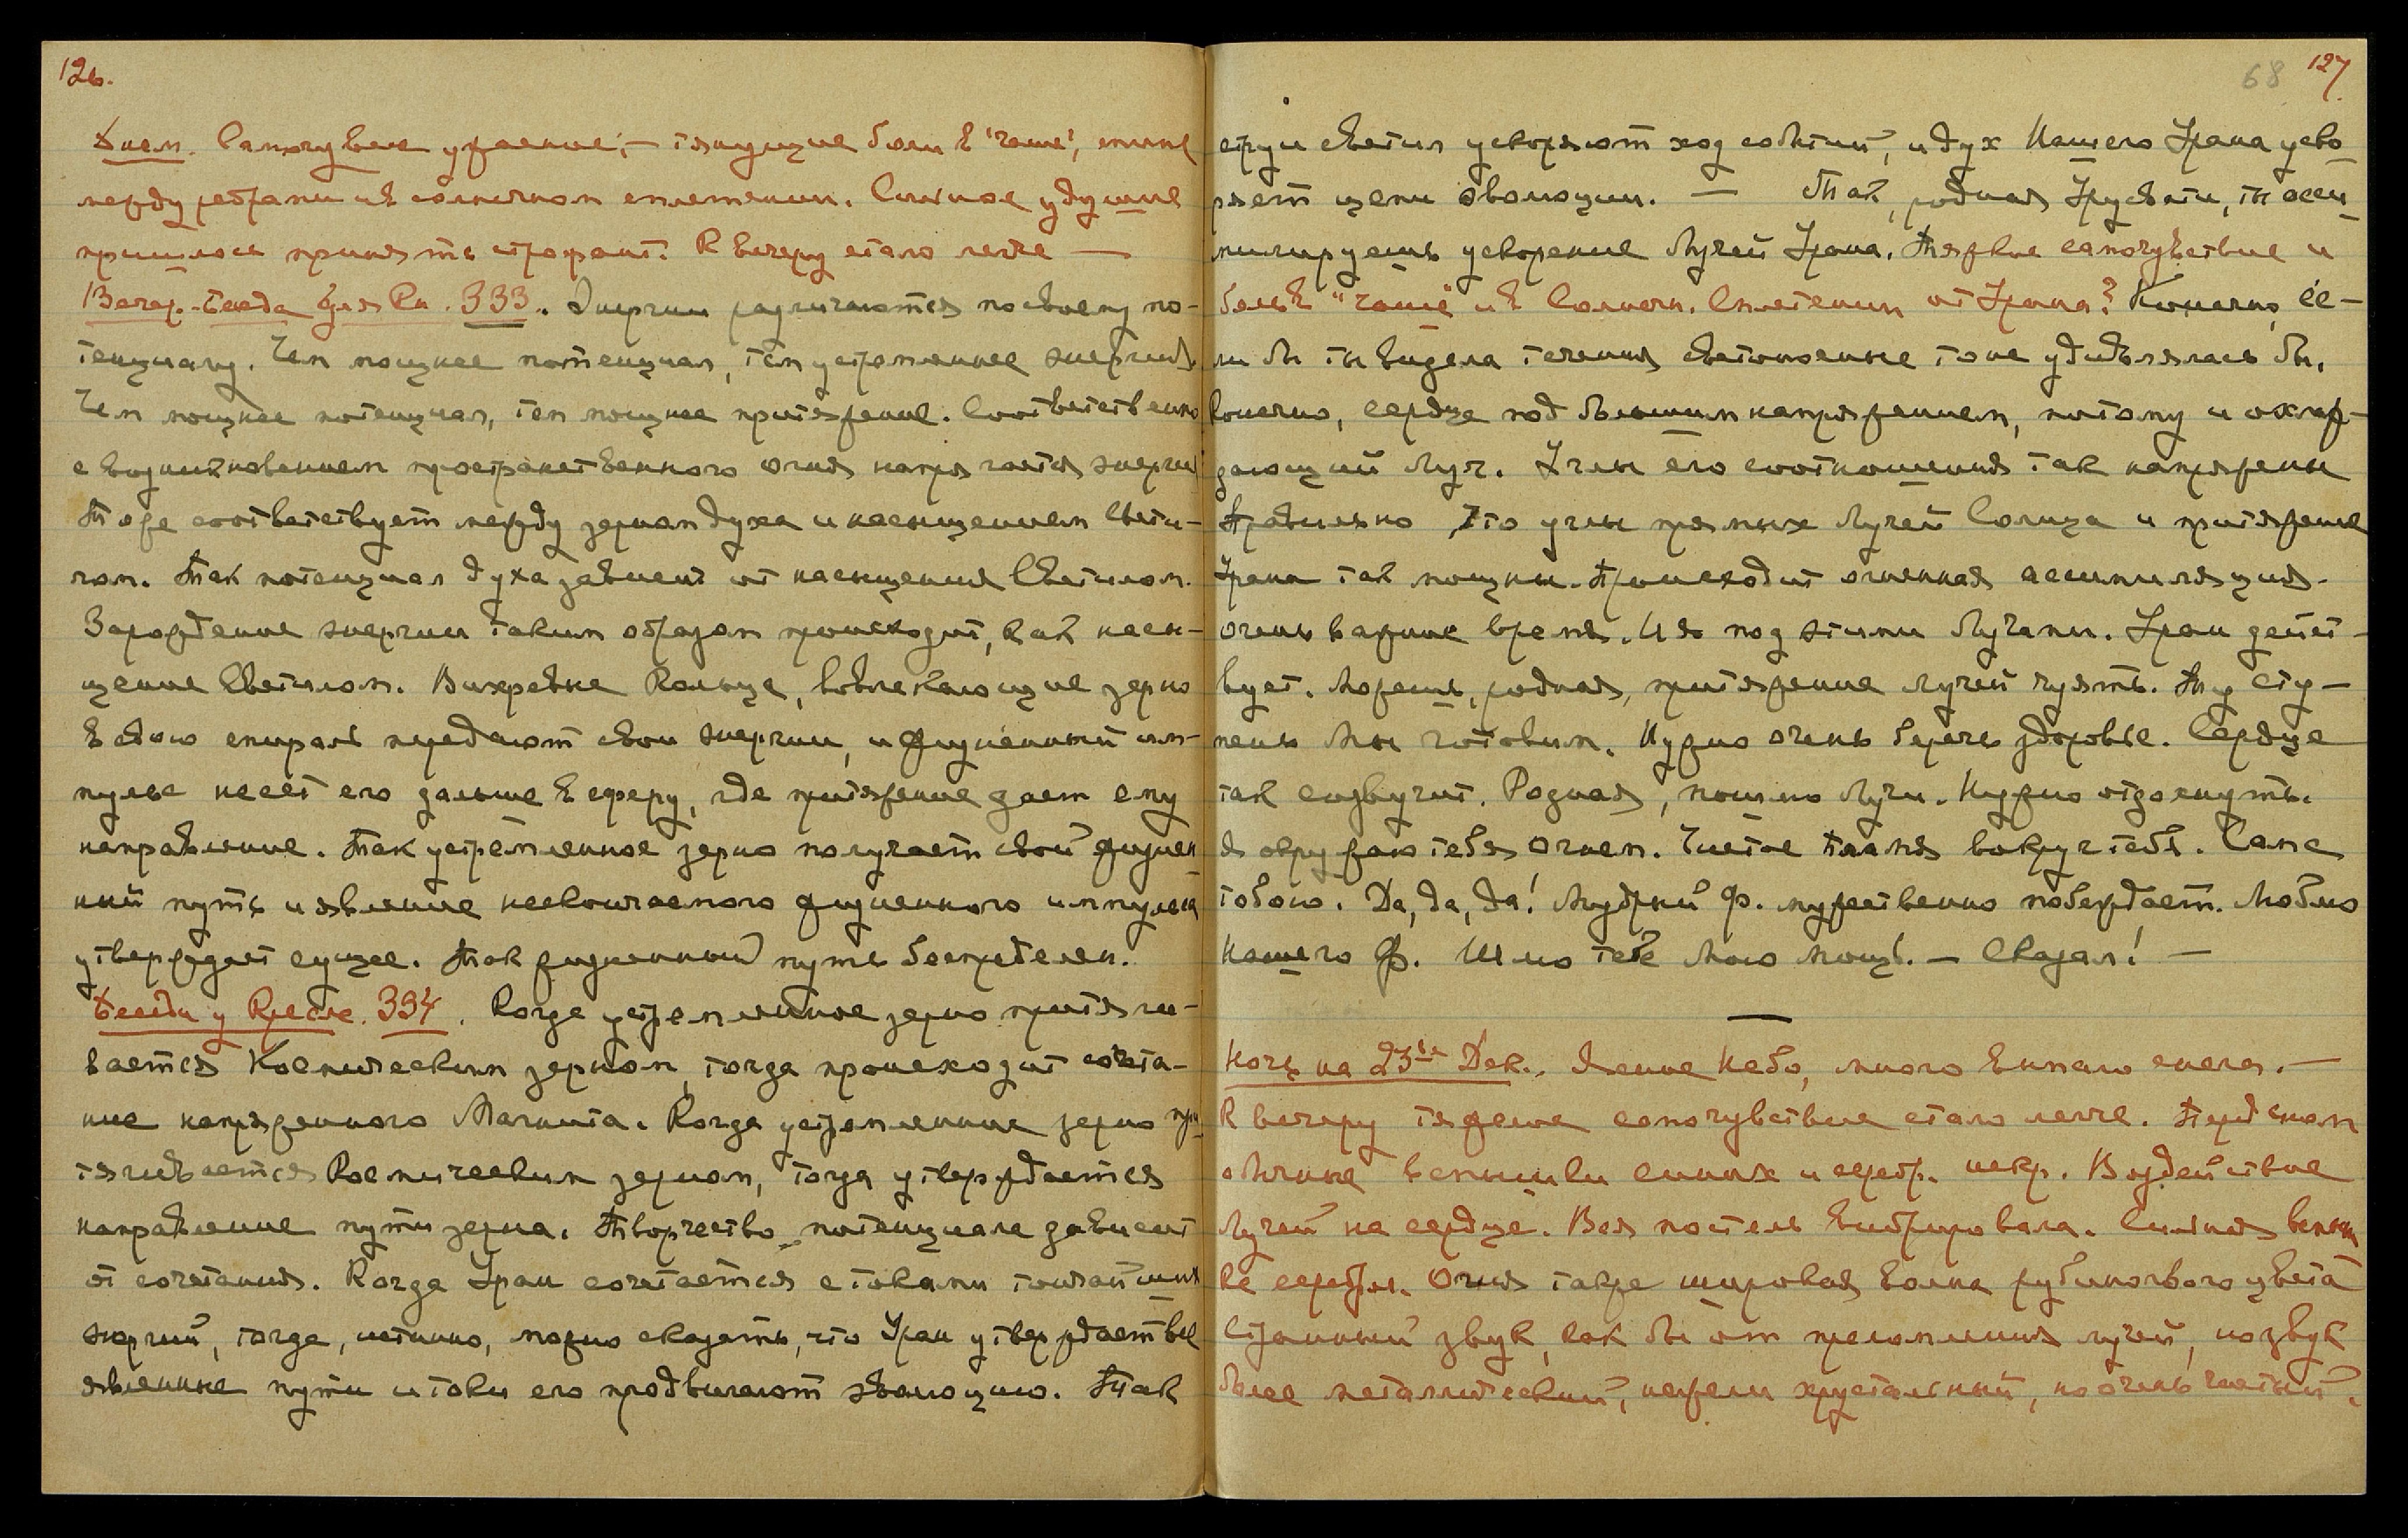 126.
Днем. Самочувствие ужасное, — тянущие боли в "чаше", спине
между ребрами и в солнечном сплетении. Сильное удушие
пришлось принять строфант. К вечеру стало легче —
Вечер. - Беседа для Кн. 333. Энергии различаются по своему по-
тенциалу. Чем мощнее потенциал, тем устремленнее энергия
Чем мощнее потенциал, тем мощнее притяжение. Соответственно
с возникновением пространственного огня напрягается энергия
То же соответствует между зерном духа и насыщением Свети-
лом. Так потенциал духа зависит от насыщения Светилом.
Зарождение энергии таким образом происходит, как насы-
щение Светилом. Вихревые Кольца, вовлекающие зерно
в свою спираль передают свои энергии, и жизненный им-
пульс несет его дальше в сферу, где притяжение дает ему
направление. Так устремленное зерно получает свой жизнен
ный путь и явление нескончаемого жизненного импульса
утверждает сущее. Так жизненный путь беспределен.
Беседа у Кресла. 334. Когда устремленное зерно притяги-
вается Космическим зерном, тогда происходит сочета-
ние напряженного Магнита. Когда устремленное зерно при
тягивается Космическим зерном, тогда утверждается
направление пути зерна. Творчество потенциала зависит
от сочетания. Когда Уран сочетается с токами тончайших
энергий, тогда, истинно, можно сказать, что Уран утверждает все
явленные пути и токи его продвигают эволюцию. Так
68 127
струи светил ускоряют ход событий, и дух Нашего Урана уско
ряет цепи эволюции. — Так, родная Урусвати, ты асси
милируешь ускорение Лучей Урана. Тяжкое самочувствие и
боль в "чаше" и в Солнечн. Сплетении от Урана? Конечно, ес-
ли бы ты видела течения светоносные то не удивлялась бы.
Конечно, сердце под большим напряжением, потому и охлаж-
дающий Луч. Углы его соотношения так напряжены
Правильно что углы прямых Лучей Солнца и притяжение
Урана так мощны. Происходит огненная ассимиляция.
Очень важное время. И я под этими Лучами. Уран дейст-
вует. Можешь, родная, притяжение лучей чуять. Ту сту-
пень Мы готовим. Нужно очень беречь здоровье. Сердце
так созвучит. Родная, пошлю Лучи. Нужно отдохнуть.
Я окружаю тебя Огнем. Чистое Пламя вокруг тебя. Сам с
тобою. Да, да, да! Мудрый Ф. мужественно побеждает. Люблю
Нашего Ф. Шлю тебе Мою Мощь. — Сказал! —
Ночь на 23ье Дек. Ясное Небо, много выпало снега. —
К вечеру тяжелое самочувствие стало легче. Перед сном
обычные вспышки синих и серебр. искр. Воздействие
Лучей на сердце. Вся постель вибрировала. Сильная вспыш
ка серебра. Огня также широкая волна рубинового цвета
Странный звук, как бы от преломления лучей, но звук
более металлический, нежели хрустальный, но очень чистый.